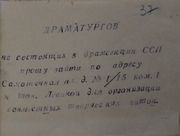 37
ДРАМАТУРГОВ
не состоящих в драмсекции ССП
прошу зайти по адресу
Самотечная пл. д. № 1/15 ком. 1
к тов. для организации
совместных творческих читок.